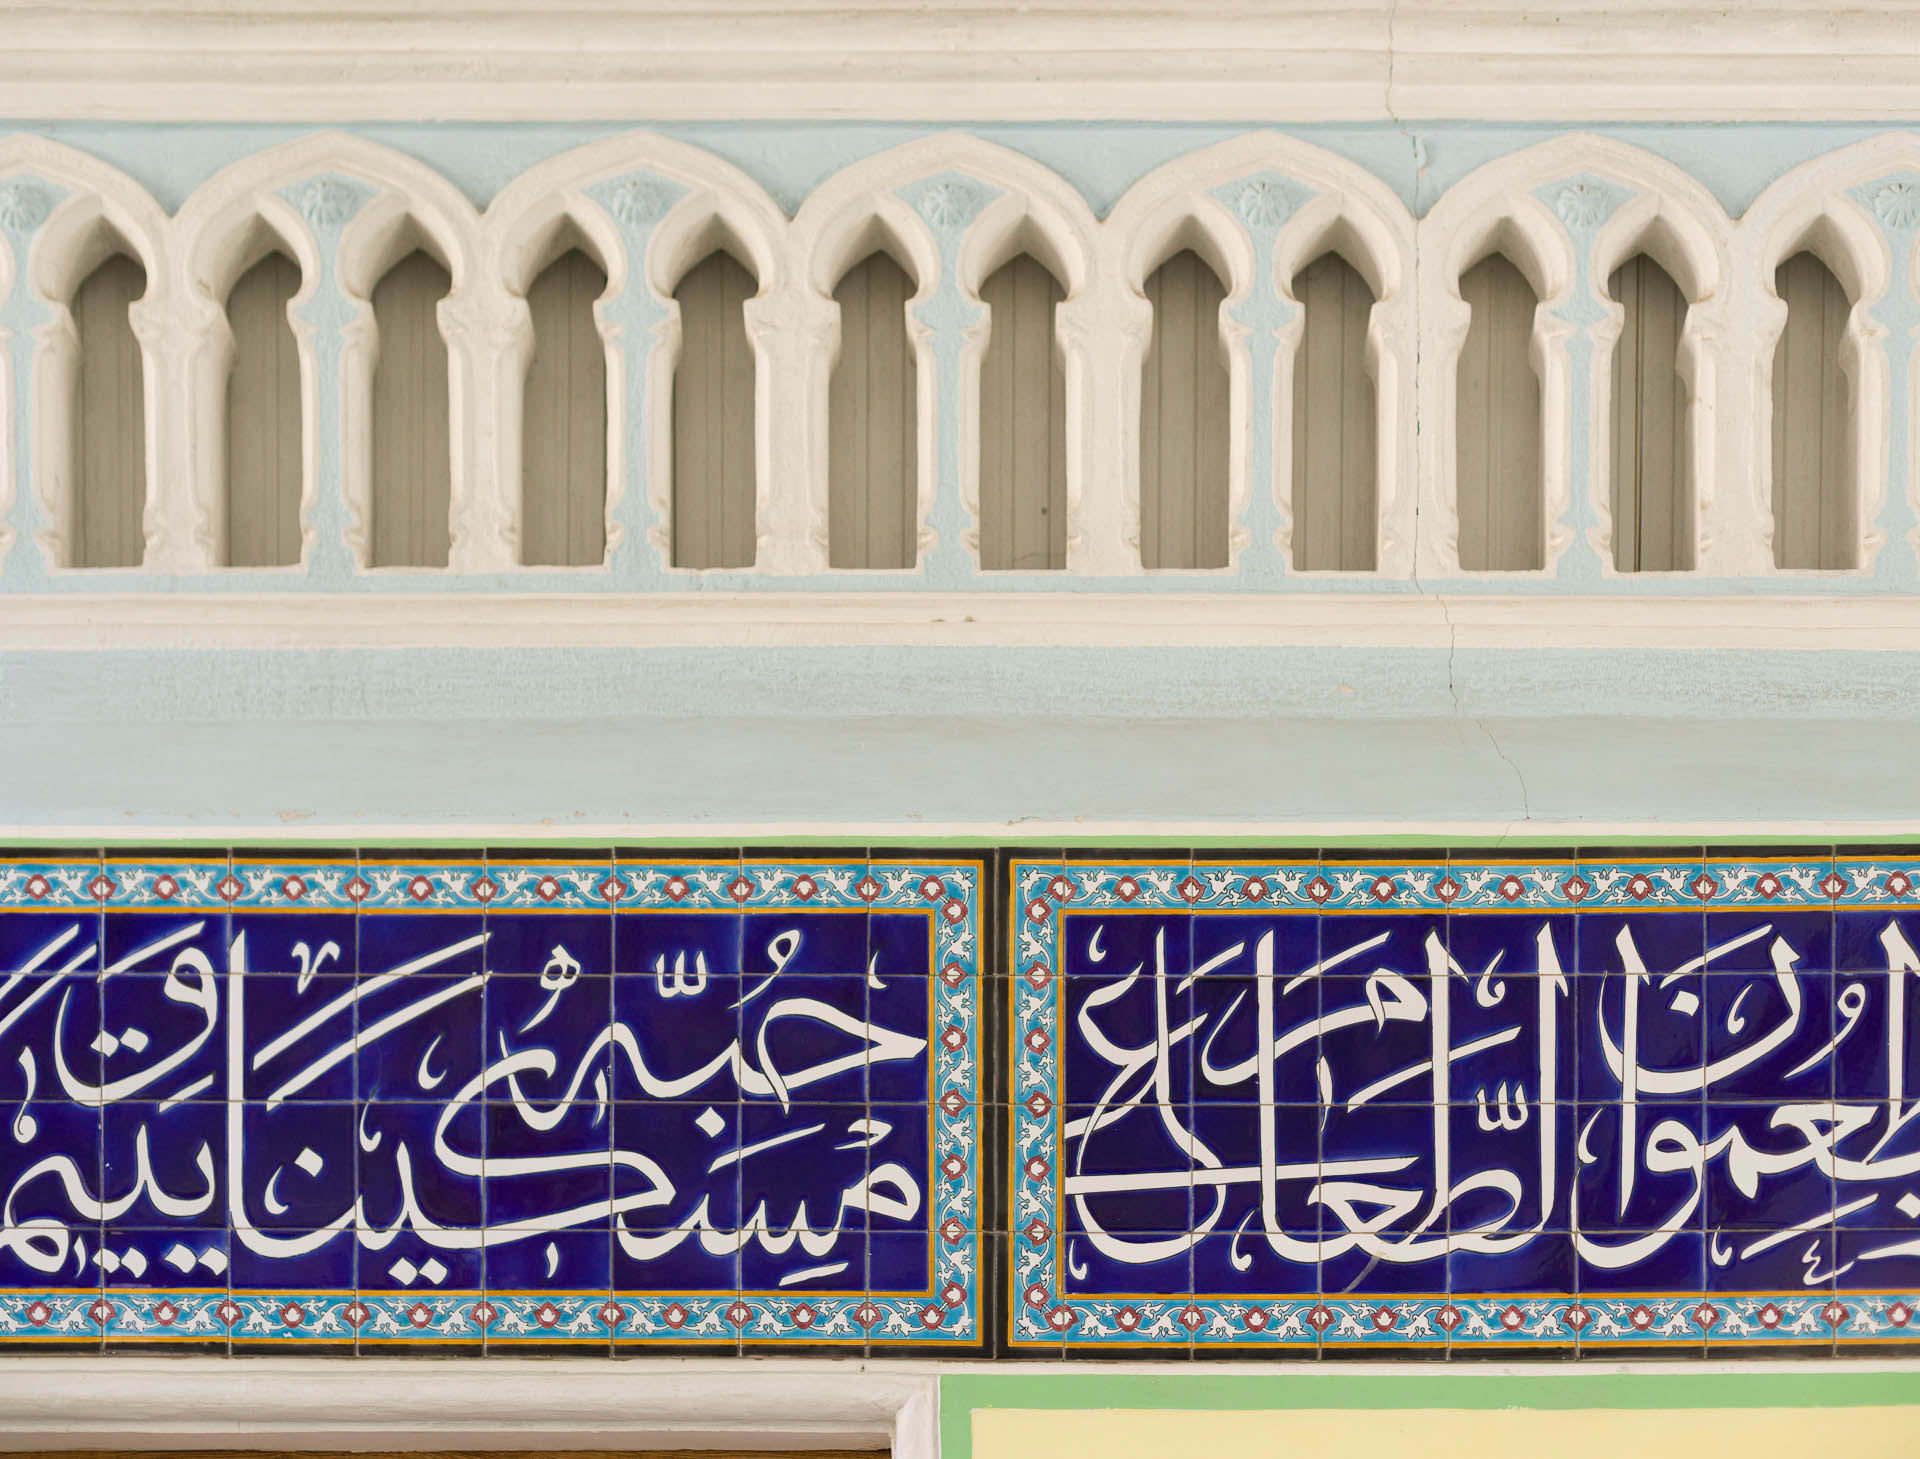 وَيُطْعِمُونَ الطَّعَامَ عَلَىٰ
حُبِّهِ مِسْكِينًا وَيَتِيمًا